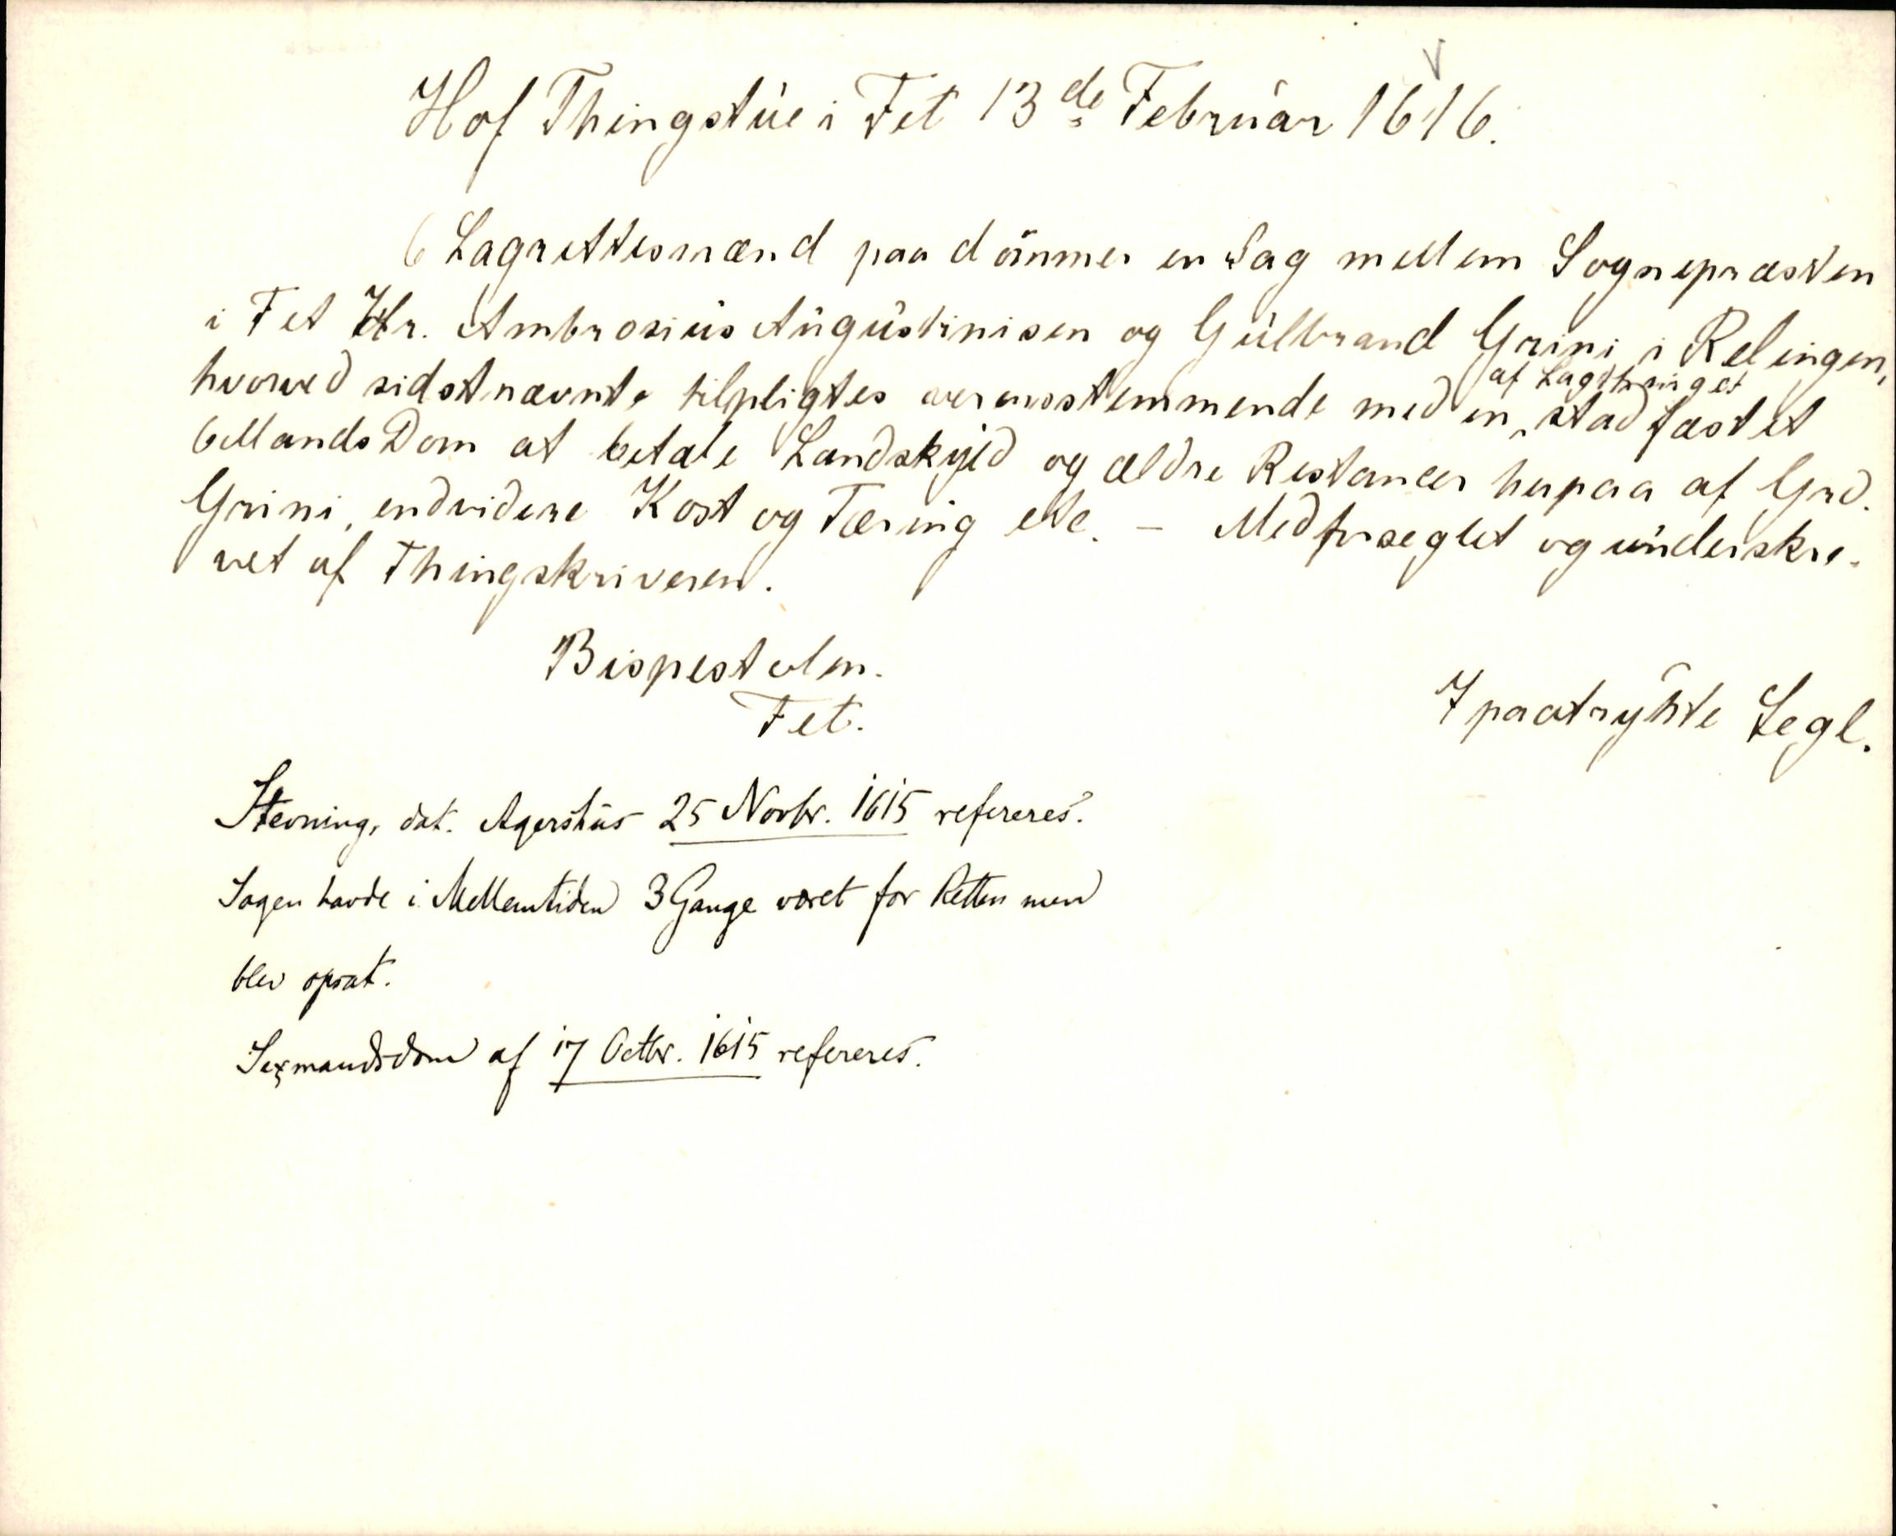 Hof Thingstue i Fet 13de Februar 1616.
6 Lagrettesmænd paadömmer en Sag mellem Sognepræsten
i Fet Hr. Ambrosius Augustinisen og Gulbrand Grini i Relingen,
hvorved sidstnævnte tilpligtes overensstemmende med en af Lagthinget stadfæstet
6 Mands Dom at betale Landskyld og ældre Restancer herpaa af Grd.
Grini, endvidere Kost og Tæring etc. - Medforseglet og underskre-
vet af Thingskriveren.
Bispestolen.
Fet.
7 paatrykte Segl.
Stevning, dat. Agershus 25 Novbr. 1615 refereres.
Sagen havde i Mellemtiden 3 Gange været for Retten men
blev opsat.
Sexmandsdom af 17 Octbr. 1615 refereres.